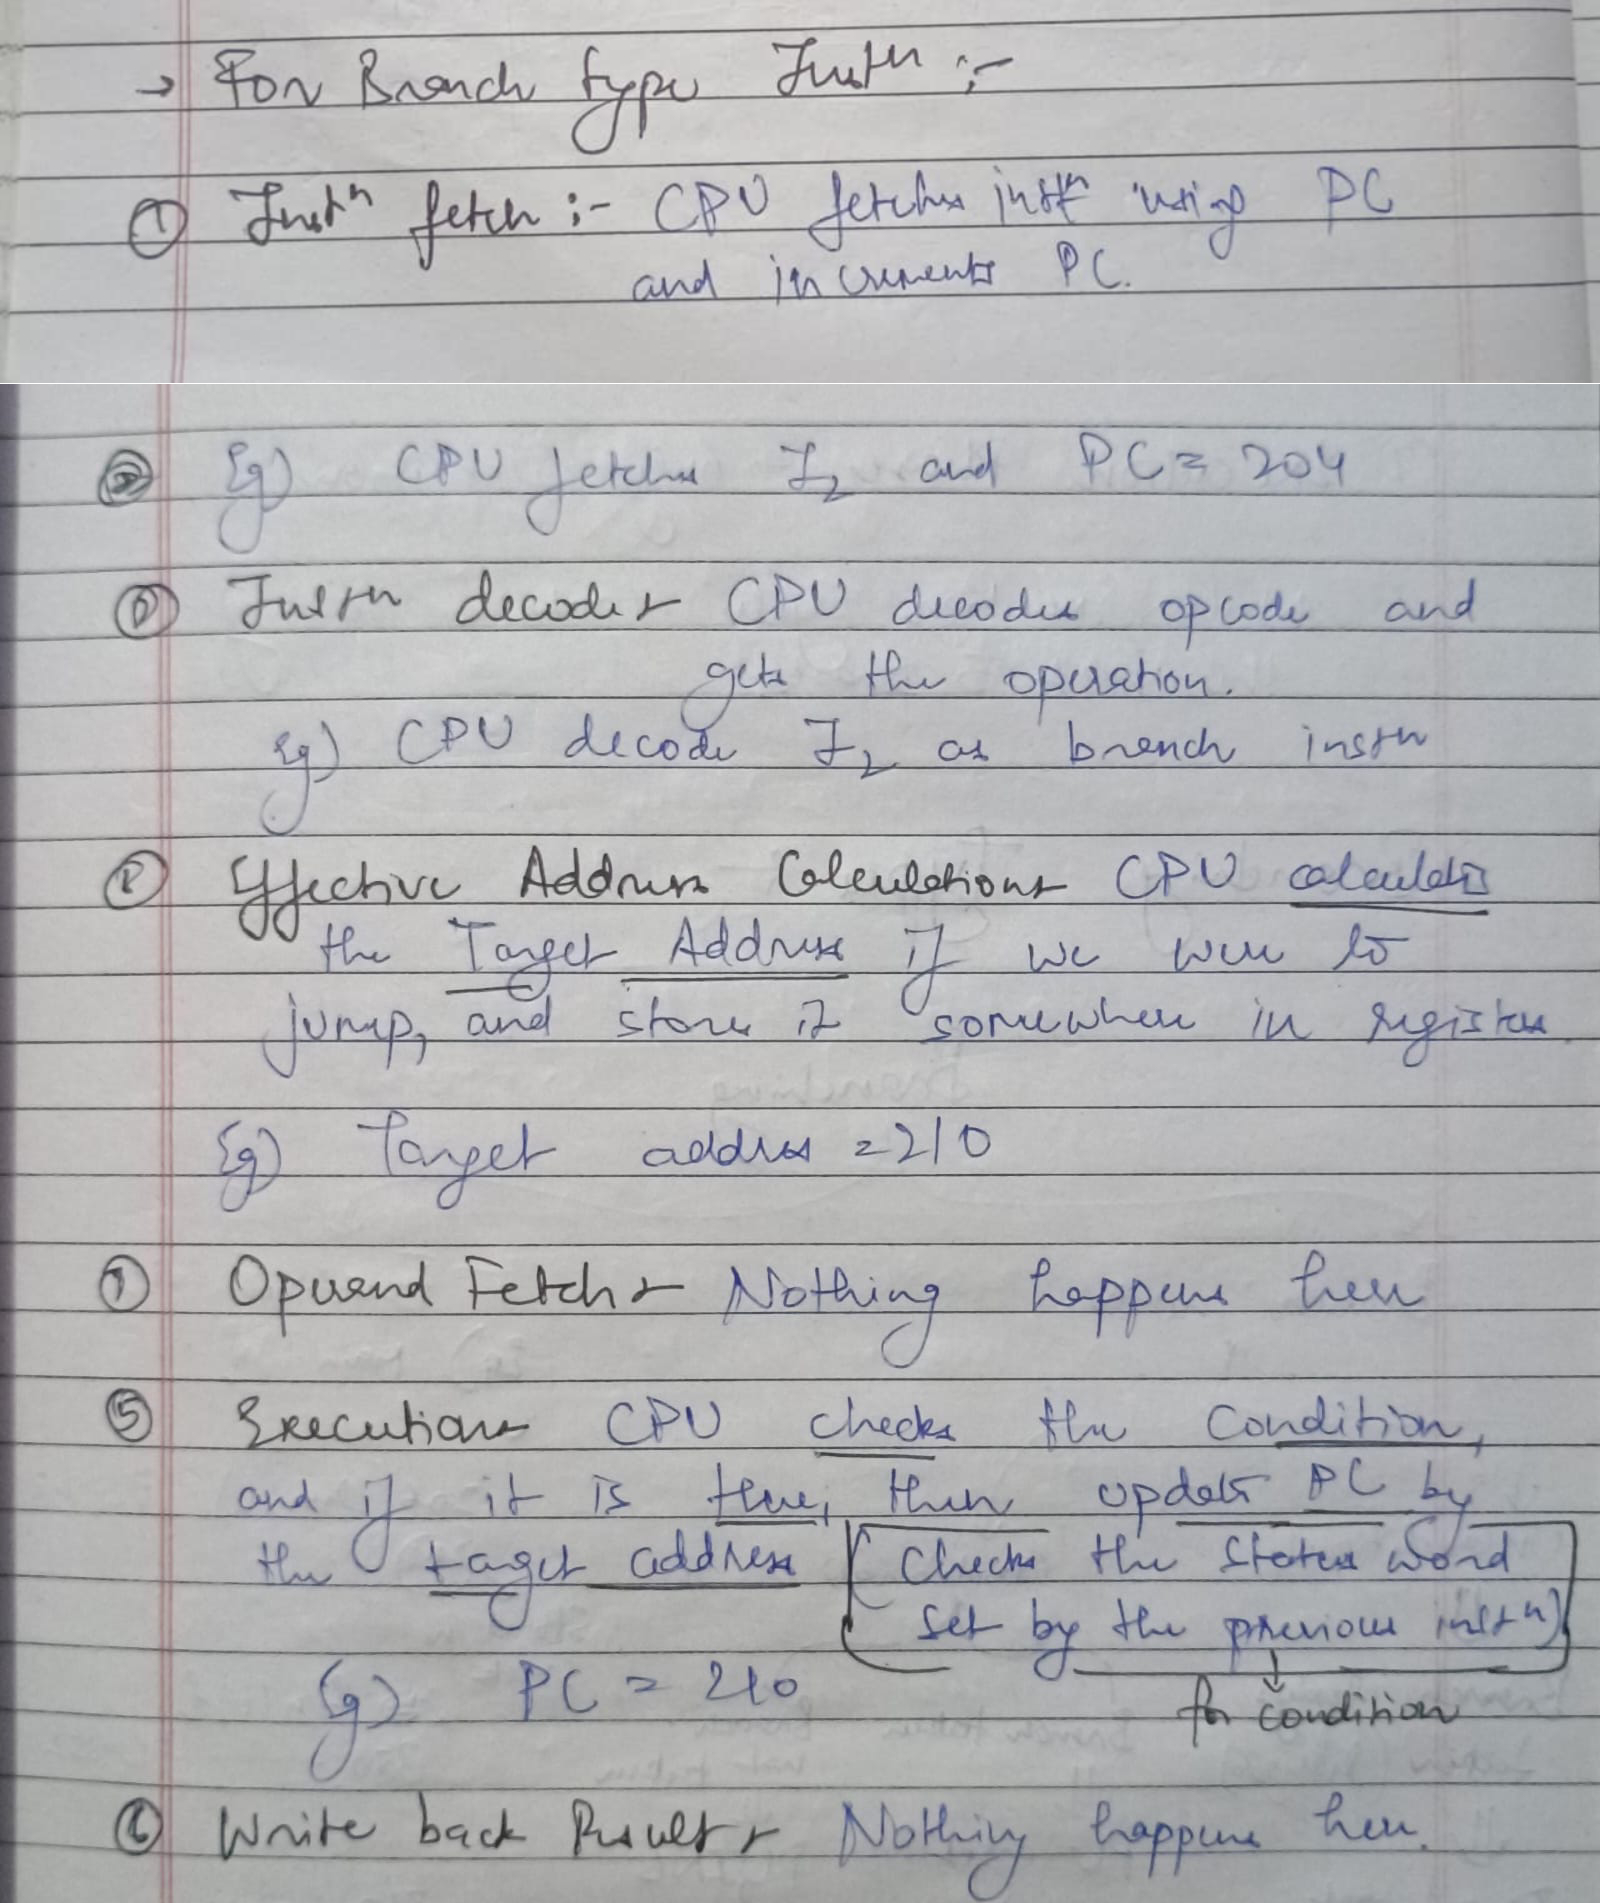 → For Branch type Instn :-
① Instn fetch :- CPU fetches instn using PC
and increments PC.
Eg) CPU fetches I2 and PC = 204
② Instn decode :- CPU decodes opcode and
gets the operation.
Eg) CPU decode I2 as branch instn
③ Effective Address Calculation :- CPU calculates
the Target Address if we were to
jump, and stores it somewhere in registers.
Eg) Target address = 210
④ Operand Fetch :- Nothing happens here
⑤ Execution :- CPU checks the Condition,
and if it is true, then update PC by
the target address (Checks the status word
set by the previous instn)
Eg) PC = 210
for condition
⑥ Write back Result :- Nothing happens here.